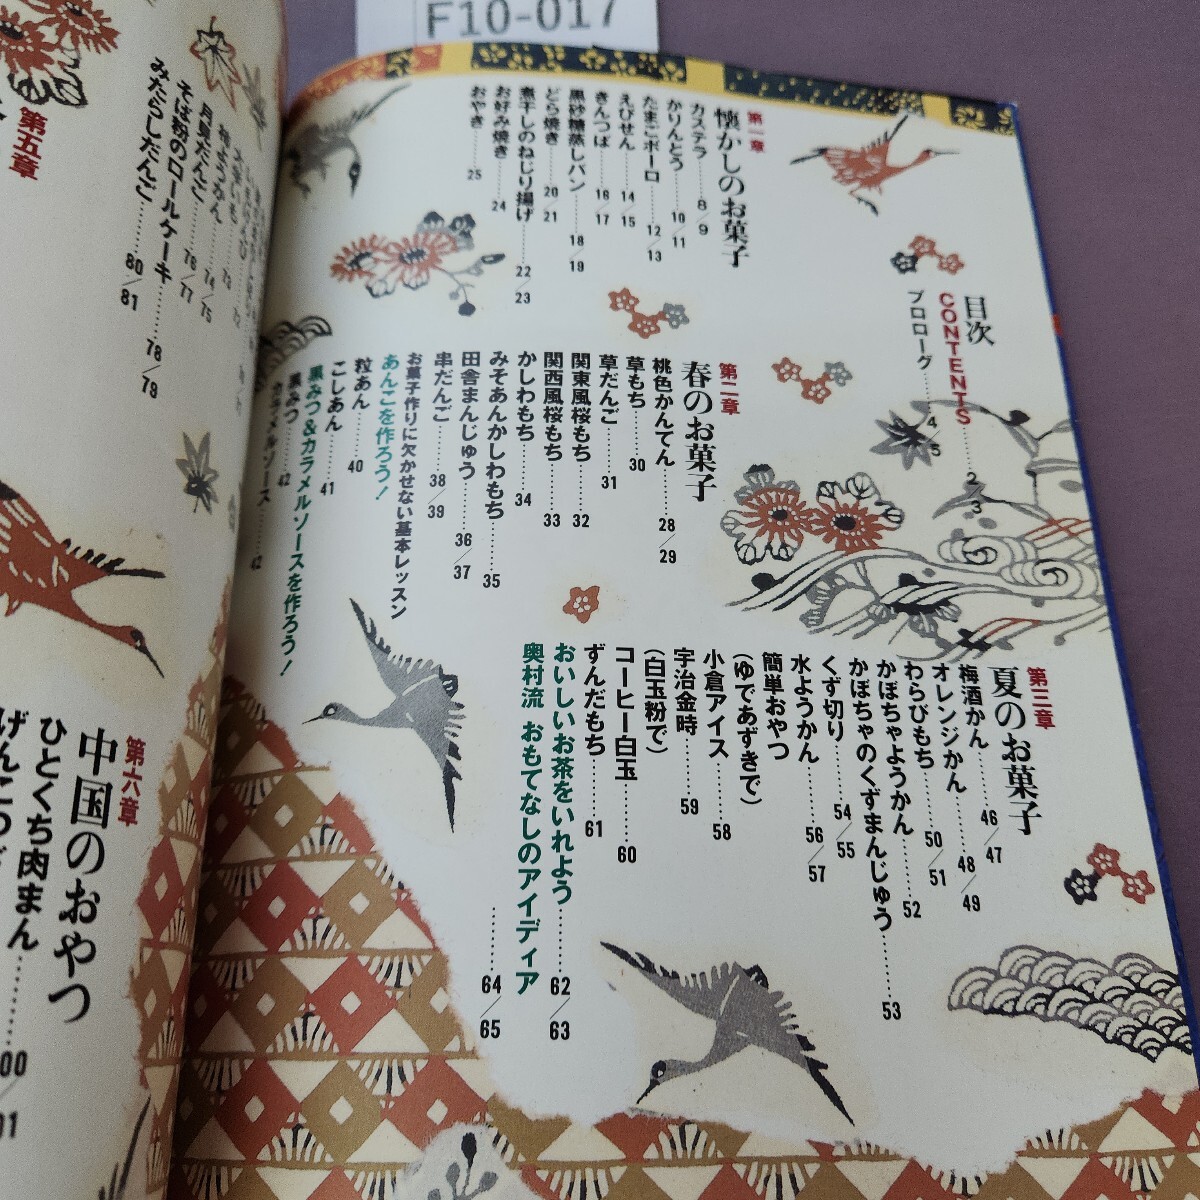 F10-017
目次
CONTENTS……2／3
プロローグ……4／5
第一章
懐かしのお菓子
カステラ……8／9
かりんとう……10／11
たまごボーロ……12／13
えびせん……14／15
きんつば……16／17
黒砂糖蒸しパン……18／19
どら焼き……20／21
煮干しのねじり揚げ……22／23
お好み焼き……24
おやき……25
第二章
春のお菓子
桃色かんてん……28／29
草もち……30
草だんご……31
関東風桜もち……32
関西風桜もち……33
かしわもち……34
みそあんかしわもち……35
田舎まんじゅう……36／37
串だんご……38／39
お菓子作りに欠かせない基本レッスン
あんこを作ろう！
粒あん……40
こしあん……41
黒みつ&カラメルソースを作ろう！
黒みつ……42
カラメルソース……42
第三章
夏のお菓子
梅酒かん……46／47
オレンジかん……48／49
わらびもち……50／51
かぼちゃようかん……52
かぼちゃのくずまんじゅう……53
くず切り……54／55
水ようかん……56／57
簡単おやつ
(ゆであずきで)
小倉アイス……58
宇治金時……59
(白玉粉で)
コーヒー白玉……60
ずんだもち……61
おいしいお茶をいれよう……62／63
奥村流 おもてなしのアイディア……64／65
月見だんご……76／77
そば粉のロールケーキ……78／79
みたらしだんご……80／81
第五章
第六章
中国のおやつ
ひとくち肉まん